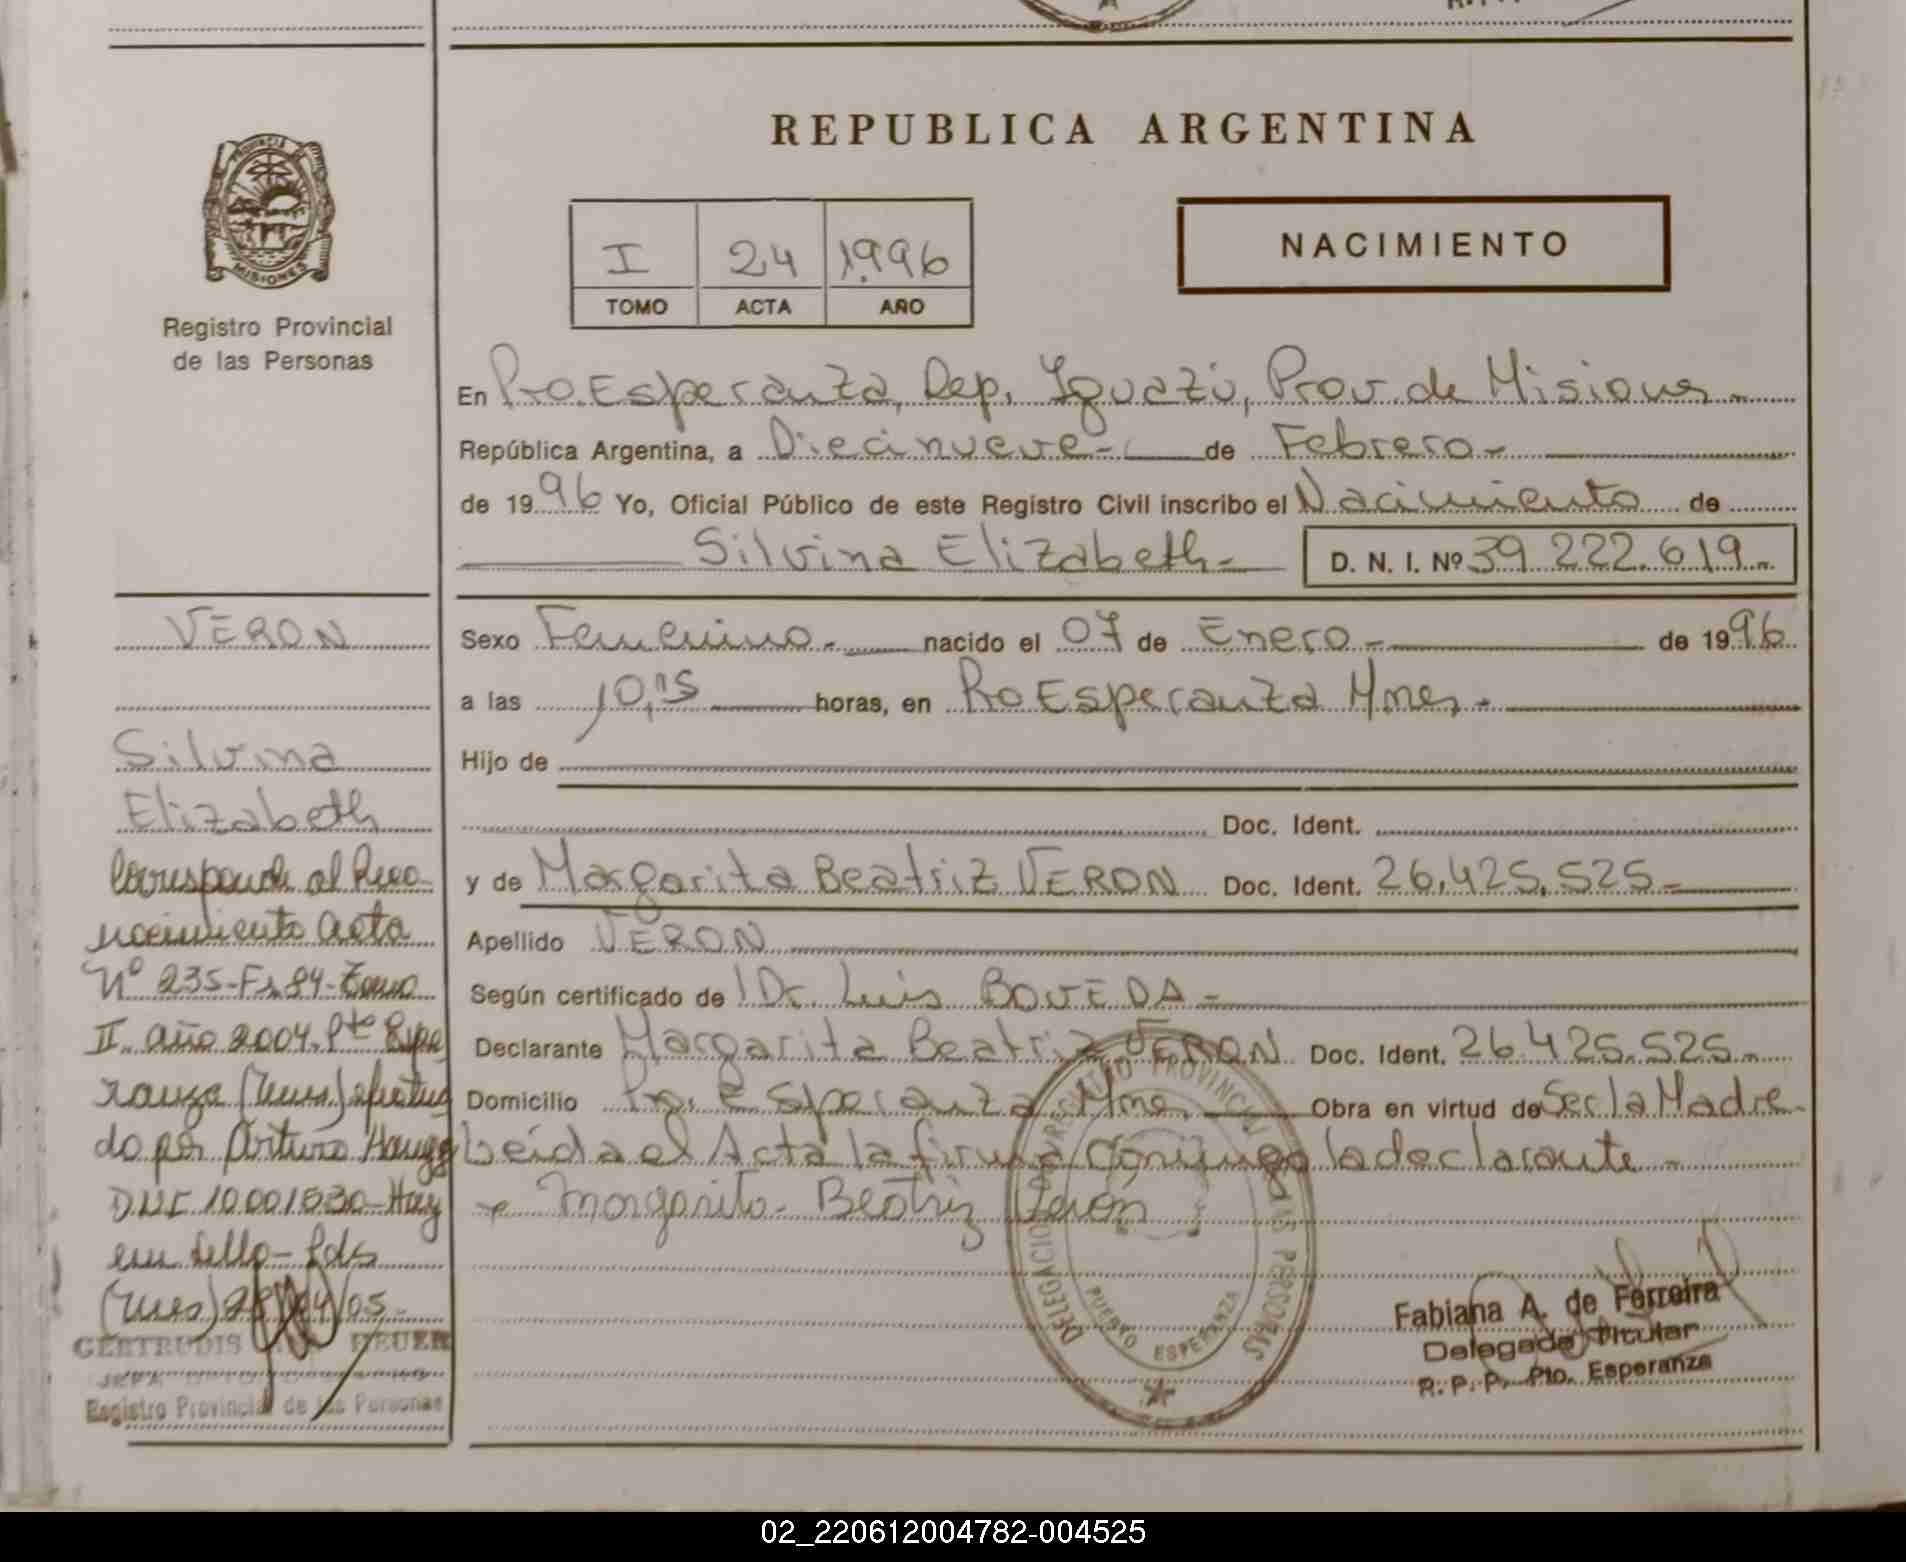 REPUBLICA ARGENTINA
PROVINCIA DE
MISIONES
Registro Provincial
de las Personas
I 24 1996
TOMO ACTA AÑO
NACIMIENTO
En Pto. Esperanza, Dep. Iguazú, Prov. de Misiones.-
República Argentina, a Diecinueve.- de Febrero.-
de 1996 Yo, Oficial Público de este Registro Civil inscribo el Nacimiento de
Silvina Elizabeth.- D. N. I. Nº 39.222.619.-
Sexo Femenino.- nacido el 07 de Enero.- de 1996
a las 10,15 horas, en Pto Esperanza Mnes.-
Hijo de
Doc. Ident.
y de Margarita Beatriz VERON Doc. Ident. 26.425.525.-
Apellido VERON
Según certificado de Dr. Luis BOVEDA.-
Declarante Margarita Beatriz VERON Doc. Ident. 26.425.525.-
Domicilio Pto. Esperanza Mnes. Obra en virtud de Ser la Madre.
Leída el Acta la firma conmigo la declarante.-
Margarita Beatriz Veron
DELEGACION REGISTRO PROVINCIAL DE LAS PERSONAS
PUERTO ESPERANZA
Fabiana A. de Ferreira
Delegada Titular
R. P. P. Pto. Esperanza
VERON
Silvina
Elizabeth
Corresponde al Reco-
nocimiento acta
Nº 235-Fs 84-Tomo
II. año 2004. Pto Espe
ranza (Mnes) efectua
do por Arturo
DNI 10001530
Pdas
(Mnes) 28/04/05.-
GERTRUDIS HEUER
JEFA
Registro Provincial de las Personas
02_220612004782-004525